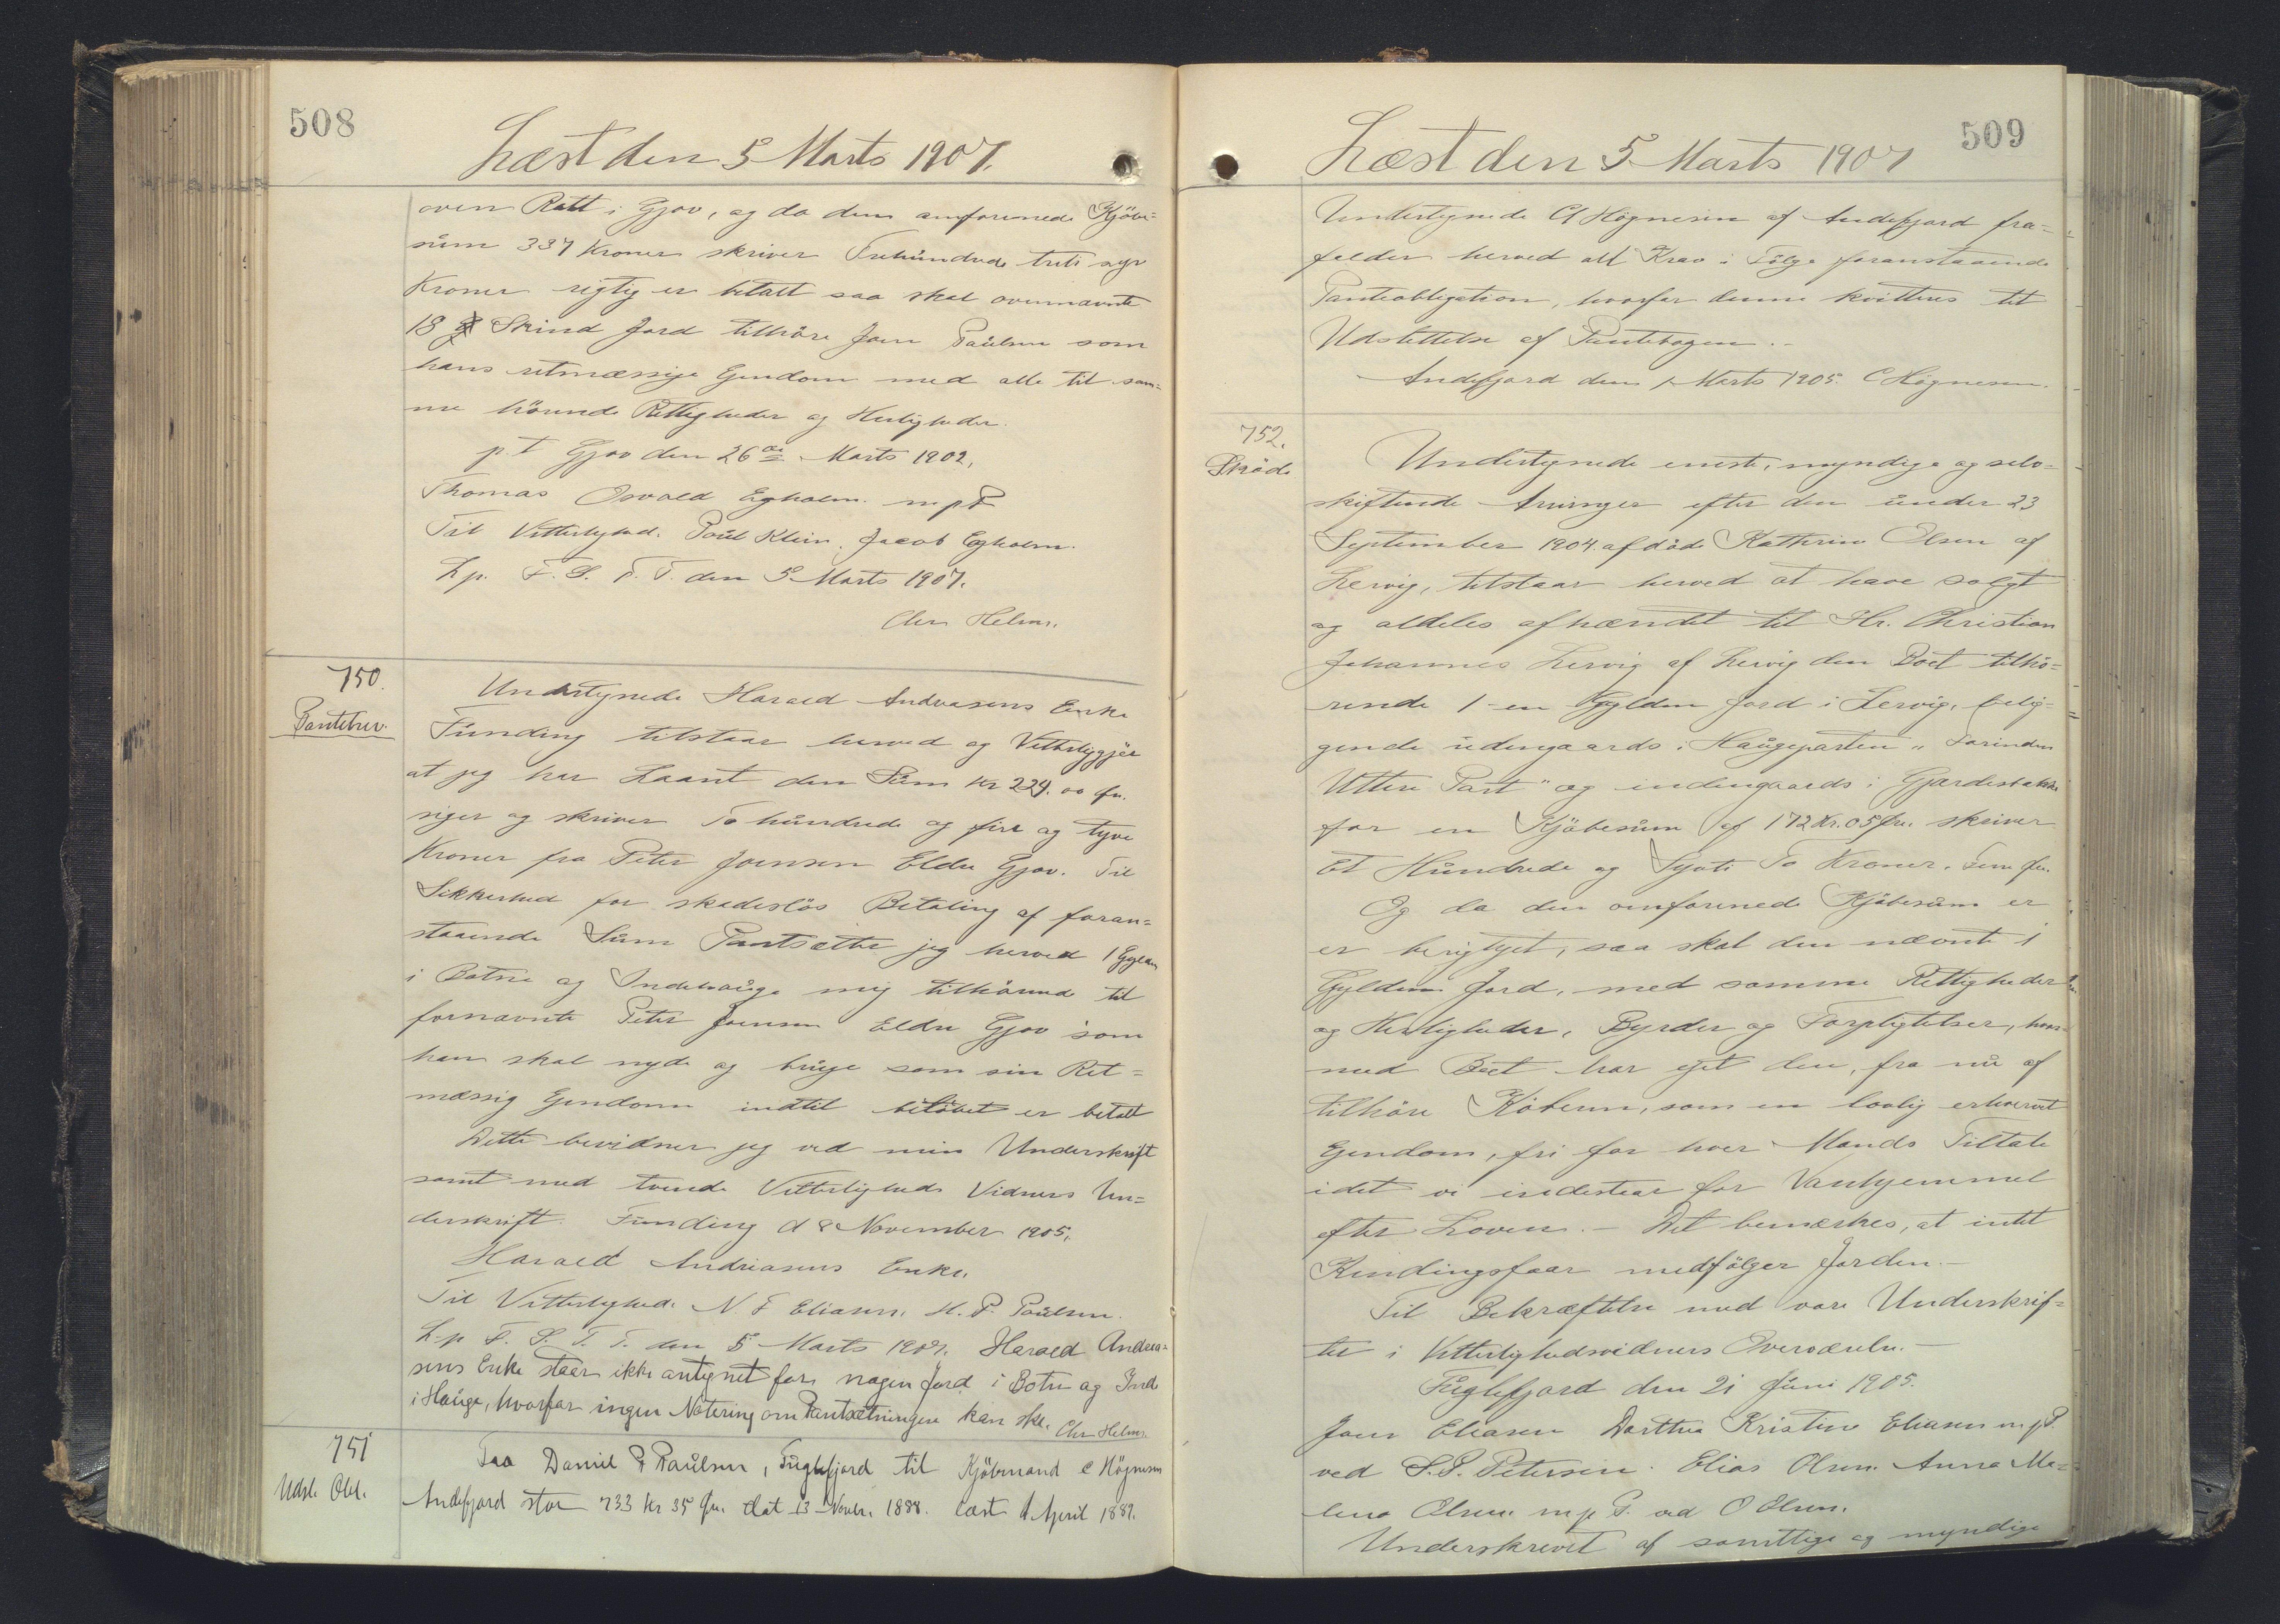 508
Læst den 5 Marts 1907.
oven Rætt i Gjov, og da den omforenede Kjöbe=
süm 337 Kroner skriver Trehündrede treti syv
Kroner rigtig er betalt saa skal ovennævnte
18 Skind Jord tilhöre Joen Paülsen som
hans retmæssige Ejendom med alle til sam=
me hörende Rettigheder og Herligheder.
p t Gjov den 26de Marts 1902,
Thomas Osvald Egholm. mpP
Til Vitterlighed. Poül Klein. Jacob Egholm.
L p. F. S. T. T. den 5 Marts 1907.
Chr Helms.
750.
Pantebrev.
Undertegnede Harald Andreasens Enke
Fünding tilstaar herved og Vitterliggjör
at jeg har Laant den Süm Kr 224. oo Øre.
siger og skriver To hündrede og fire og tyve
Kroner fra Peter Joensen Eldre Gjov. Til
Sikkerhed for skadeslös Betaling af foran=
staaende Süm Pantsætter jeg herved 1 Gylden
i Botne og Indehaüge mig tilhörende til
fornævnte Peter Joensen Eldre Gjov som
han skal nyde og brüge som sin Ret=
mæssig Ejendom indtil belöbet er betalt
Dette bevidner jeg ved min Underskrift
samt med tvende Vitterligheds Vidners Un=
derskrift. Fünding d 8 November 1905,
Harald Andreasens Enke.
Til Vitterlighed. N. F Eliasen. H. P. Paülsen.
L. p F. S. T. T. den 5 Marts 1907. Harald Andrea=
sens Enke staar ikke antegnet for nogen Jord i Botn og Ind
i Haüge, hvorfor ingen Notering om Pantsætningen kan ske. Chr Helms.
751
Udsl. Obl.
Fra Daniel P Paülsen, Fuglefjord til Kjöbmand C Högnesen
Andefjord stor 733 Kr 35 Øre. dat 13 Novbr. 1888. læst 1 April 1889.
509
Læst den 5 Marts 1907
Undertegnede C Högnesen af Andefjord fra=
falder herved alt Krav i Fölge foranstaaende
Panteobligation, hvorfor denne kvitteres til
Udslettelse af Pantebogen.-
Andefjord den 1 Marts 1905. C Högnesen.
752.
Skøde
Undertegnede eneste, myndige og selv=
skiftende Arvinger efter den ünder 23
September 1904 afdöde Kathrine Olsen af
Lervig, tilstaar herved at have solgt
og aldeles afhændet til Hr. Christian
Johannes Lervig af Lervig den Boet tilhö=
rende 1 - en Gylden Jord i Lervig, belig=
gende üdengaards i Haügeparten "Farinden
Uttere Part" og indengaards i Gjærdestakke
for en Kjöbesüm af 172 Kr. 05 Øre. skriver
Et Hündrede og Syvti To Kroner. Fem Øre.
Og da den omforenede Kjöbesüm er
er berigtiget, saa skal den nævnte 1
Gylden Jord, med samme Rettigheder
og Herligheder, Byrder og Forpligtelser, hvor=
med Boet har ejet den, fra nü af
tilhöre Köberen, som en lovlig erhvervet
Ejendom, fri for hver Mands Tiltale
idet vi indestaar for Vanhjemmel
efter Loven. - Det bemærkes, at intet
Kindingsfaar medfölger Jorden.-
Til Bekræftelse med vore Underskrif=
ter i Vitterlighedsvidners Overværelse.-
Füglefjord den 21 Jüni 1905.
Joen Eliasen Dorthea Kristine Eliasen m. p. P.
ved S. P. Petersen. Elias Olsen. Anna Ma=
lena Olsen. m p P. ved O Olsen.
Underskrevet af samtlige og myndige